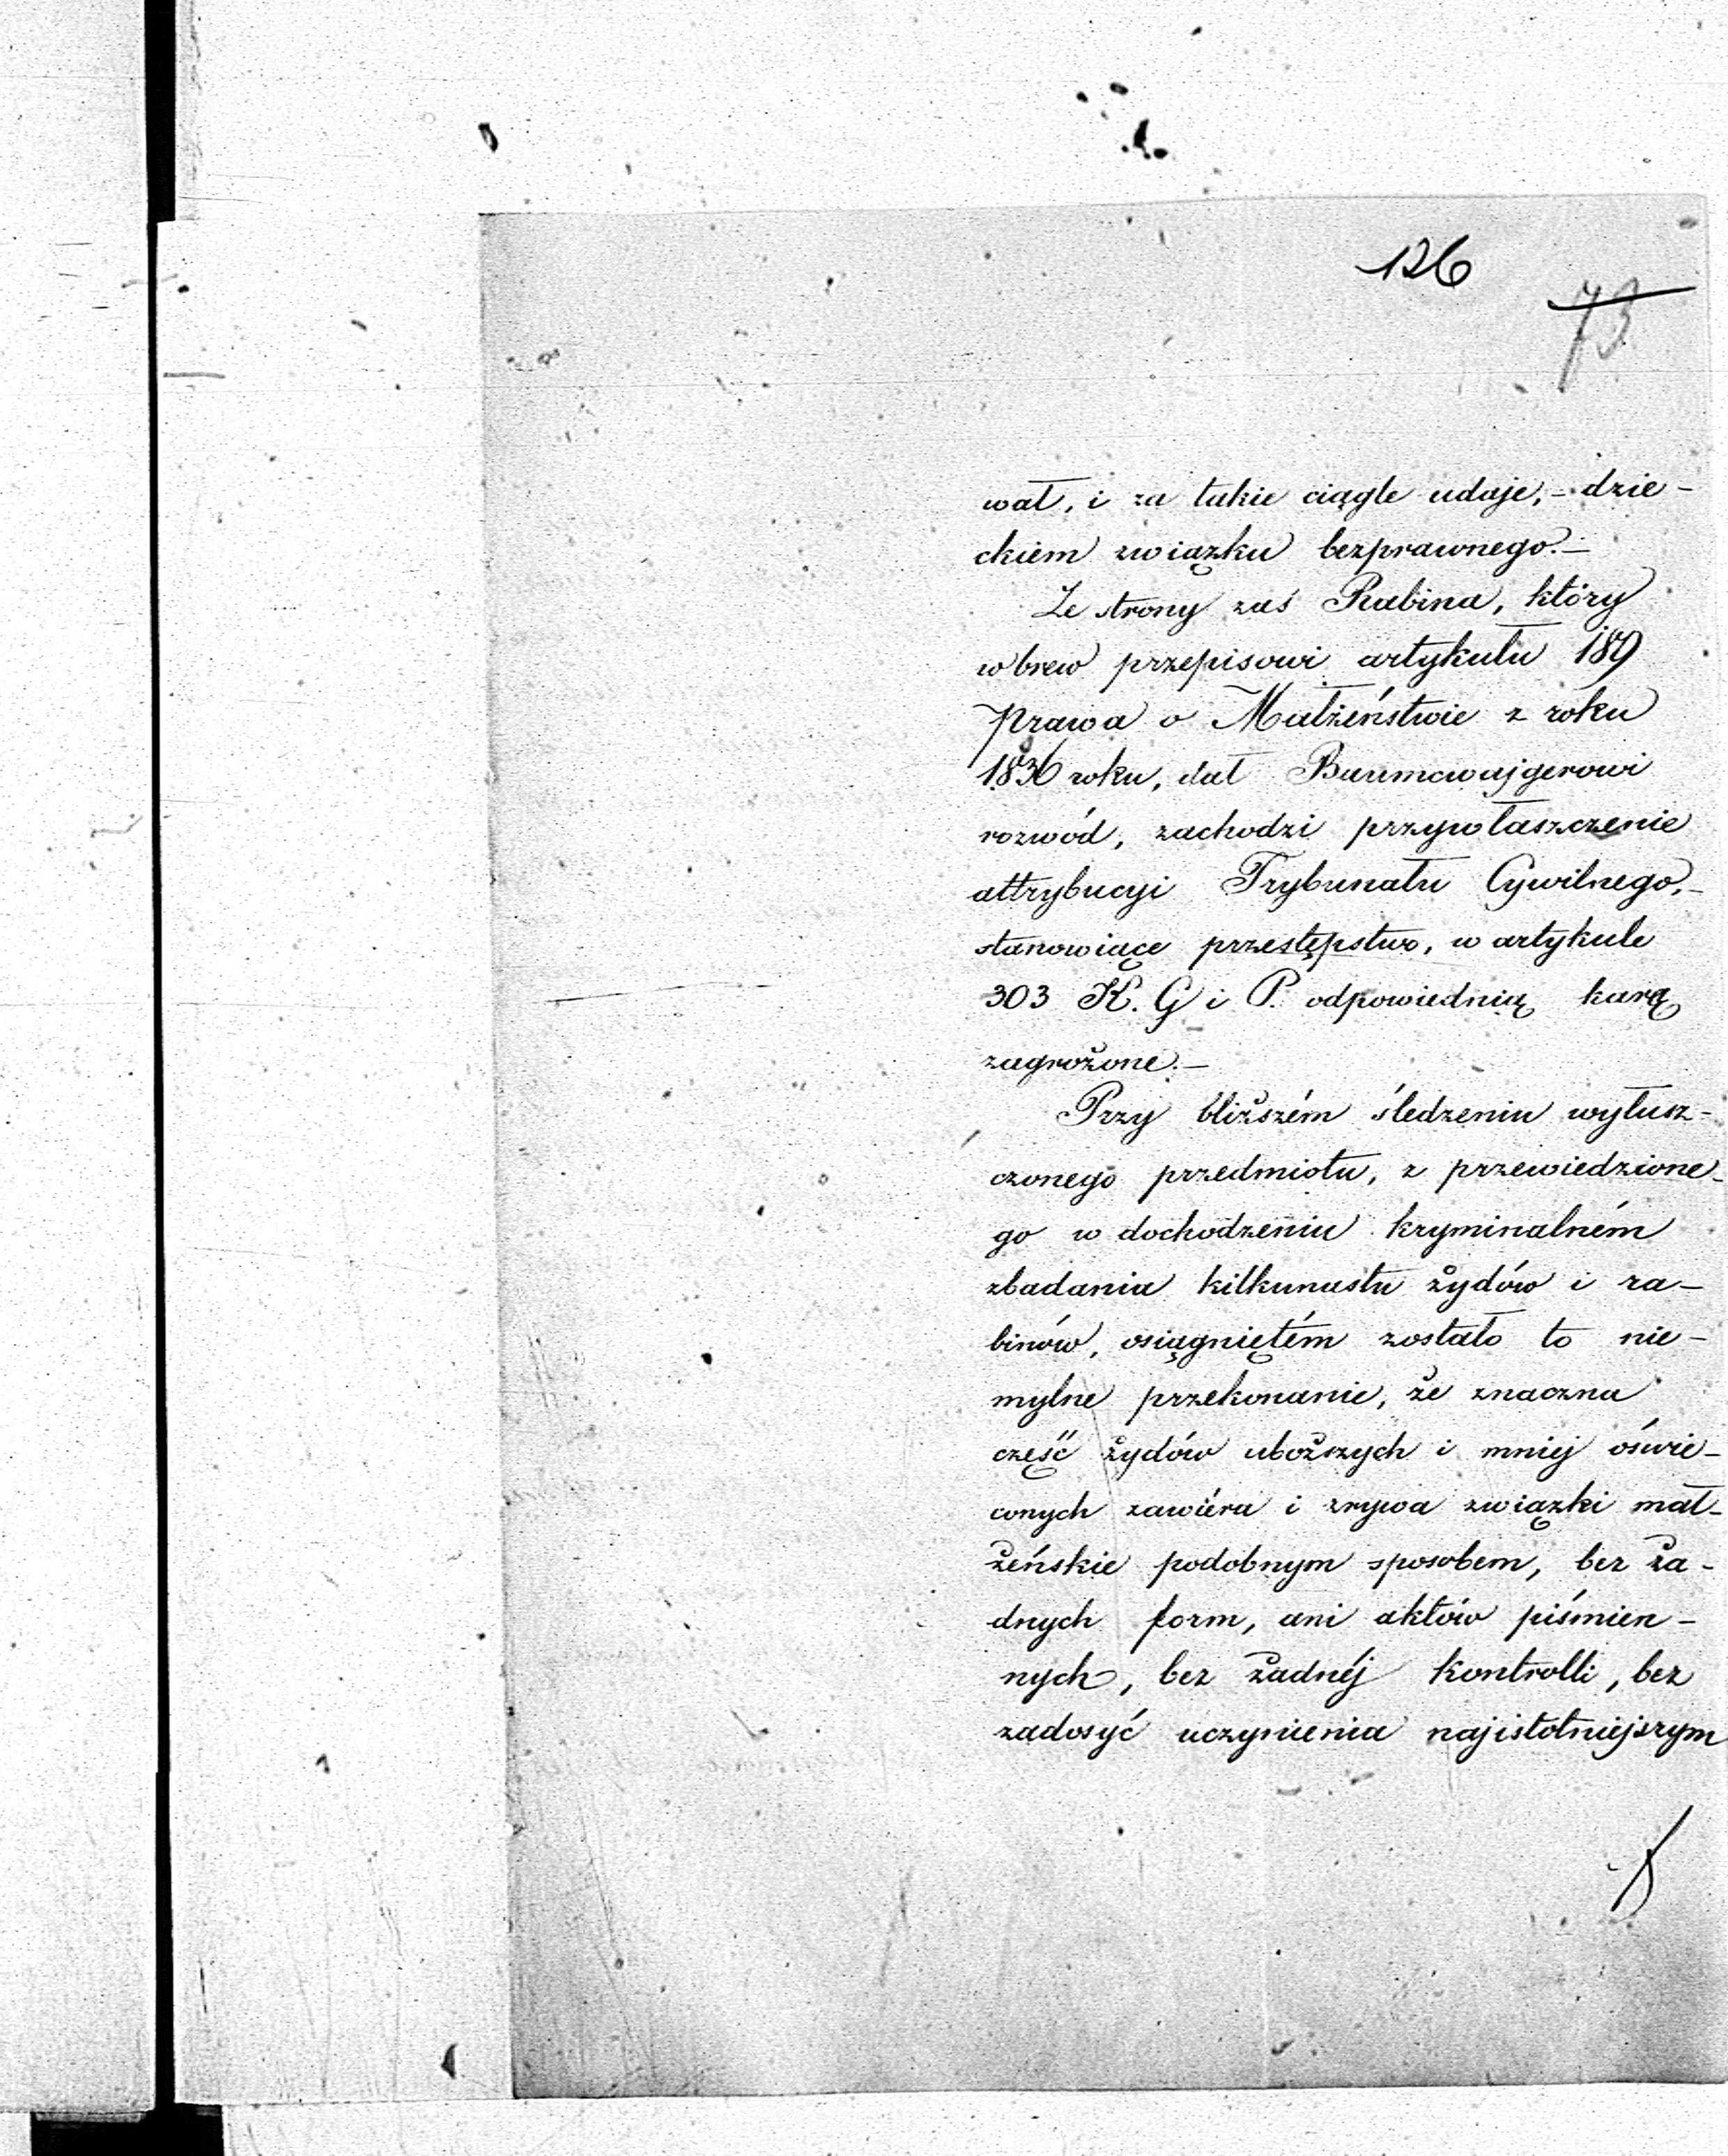 126
73
wał, i za takie ciągle udaje, - dzie-
ckiem związku bezprawnego. -
Ze strony zaś Rabina, który
wbrew przepisowi artykułu 189
Prawa o Małżeństwie z roku
1836 roku, dał Baumcwajgerowi
rozwód, zachodzi przywłaszczenie
attrybucyi Trybunału Cywilnego, -
stanowiące przestępstwo, w artykule
303 K. G i P. odpowiednią karą
zagrożone. -
Przy bliższém śledzeniu wyłusz-
czonego przedmiotu, z przewiedzione-
go w dochodzeniu kryminalném
zbadania kilkunastu żydów i ra-
binów, osiągniętém zostało to nie-
mylne przekonanie, że znaczna
część żydów uboższych i mniej oświe-
conych zawiéra i zrywa związki mał-
żeńskie podobnym sposobem, bez ża-
dnych form, ani aktów piśmien-
nych, bez żadnéj kontrolli, bez
zadosyć uczynienia najistotniejszym